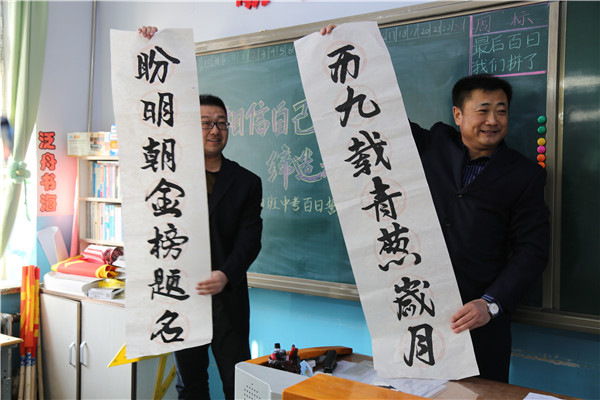 盼明朝金榜题名
而九载青葱歲月
信自己
缔造
班中考百日誓
周标
最后百日
我们拼了
泛舟书海